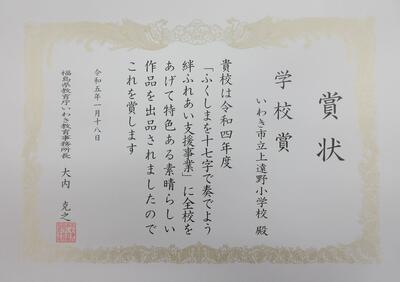 賞状
学校賞
いわき市立上遠野小学校 殿
貴校は令和四年度
「ふくしまを十七字で奏でよう
絆ふれあい支援事業」に全校を
あげて特色ある素晴らしい
作品を出品されましたので
これを賞します
令和五年一月十八日
福島県教育庁いわき教育事務所長 大内 克之